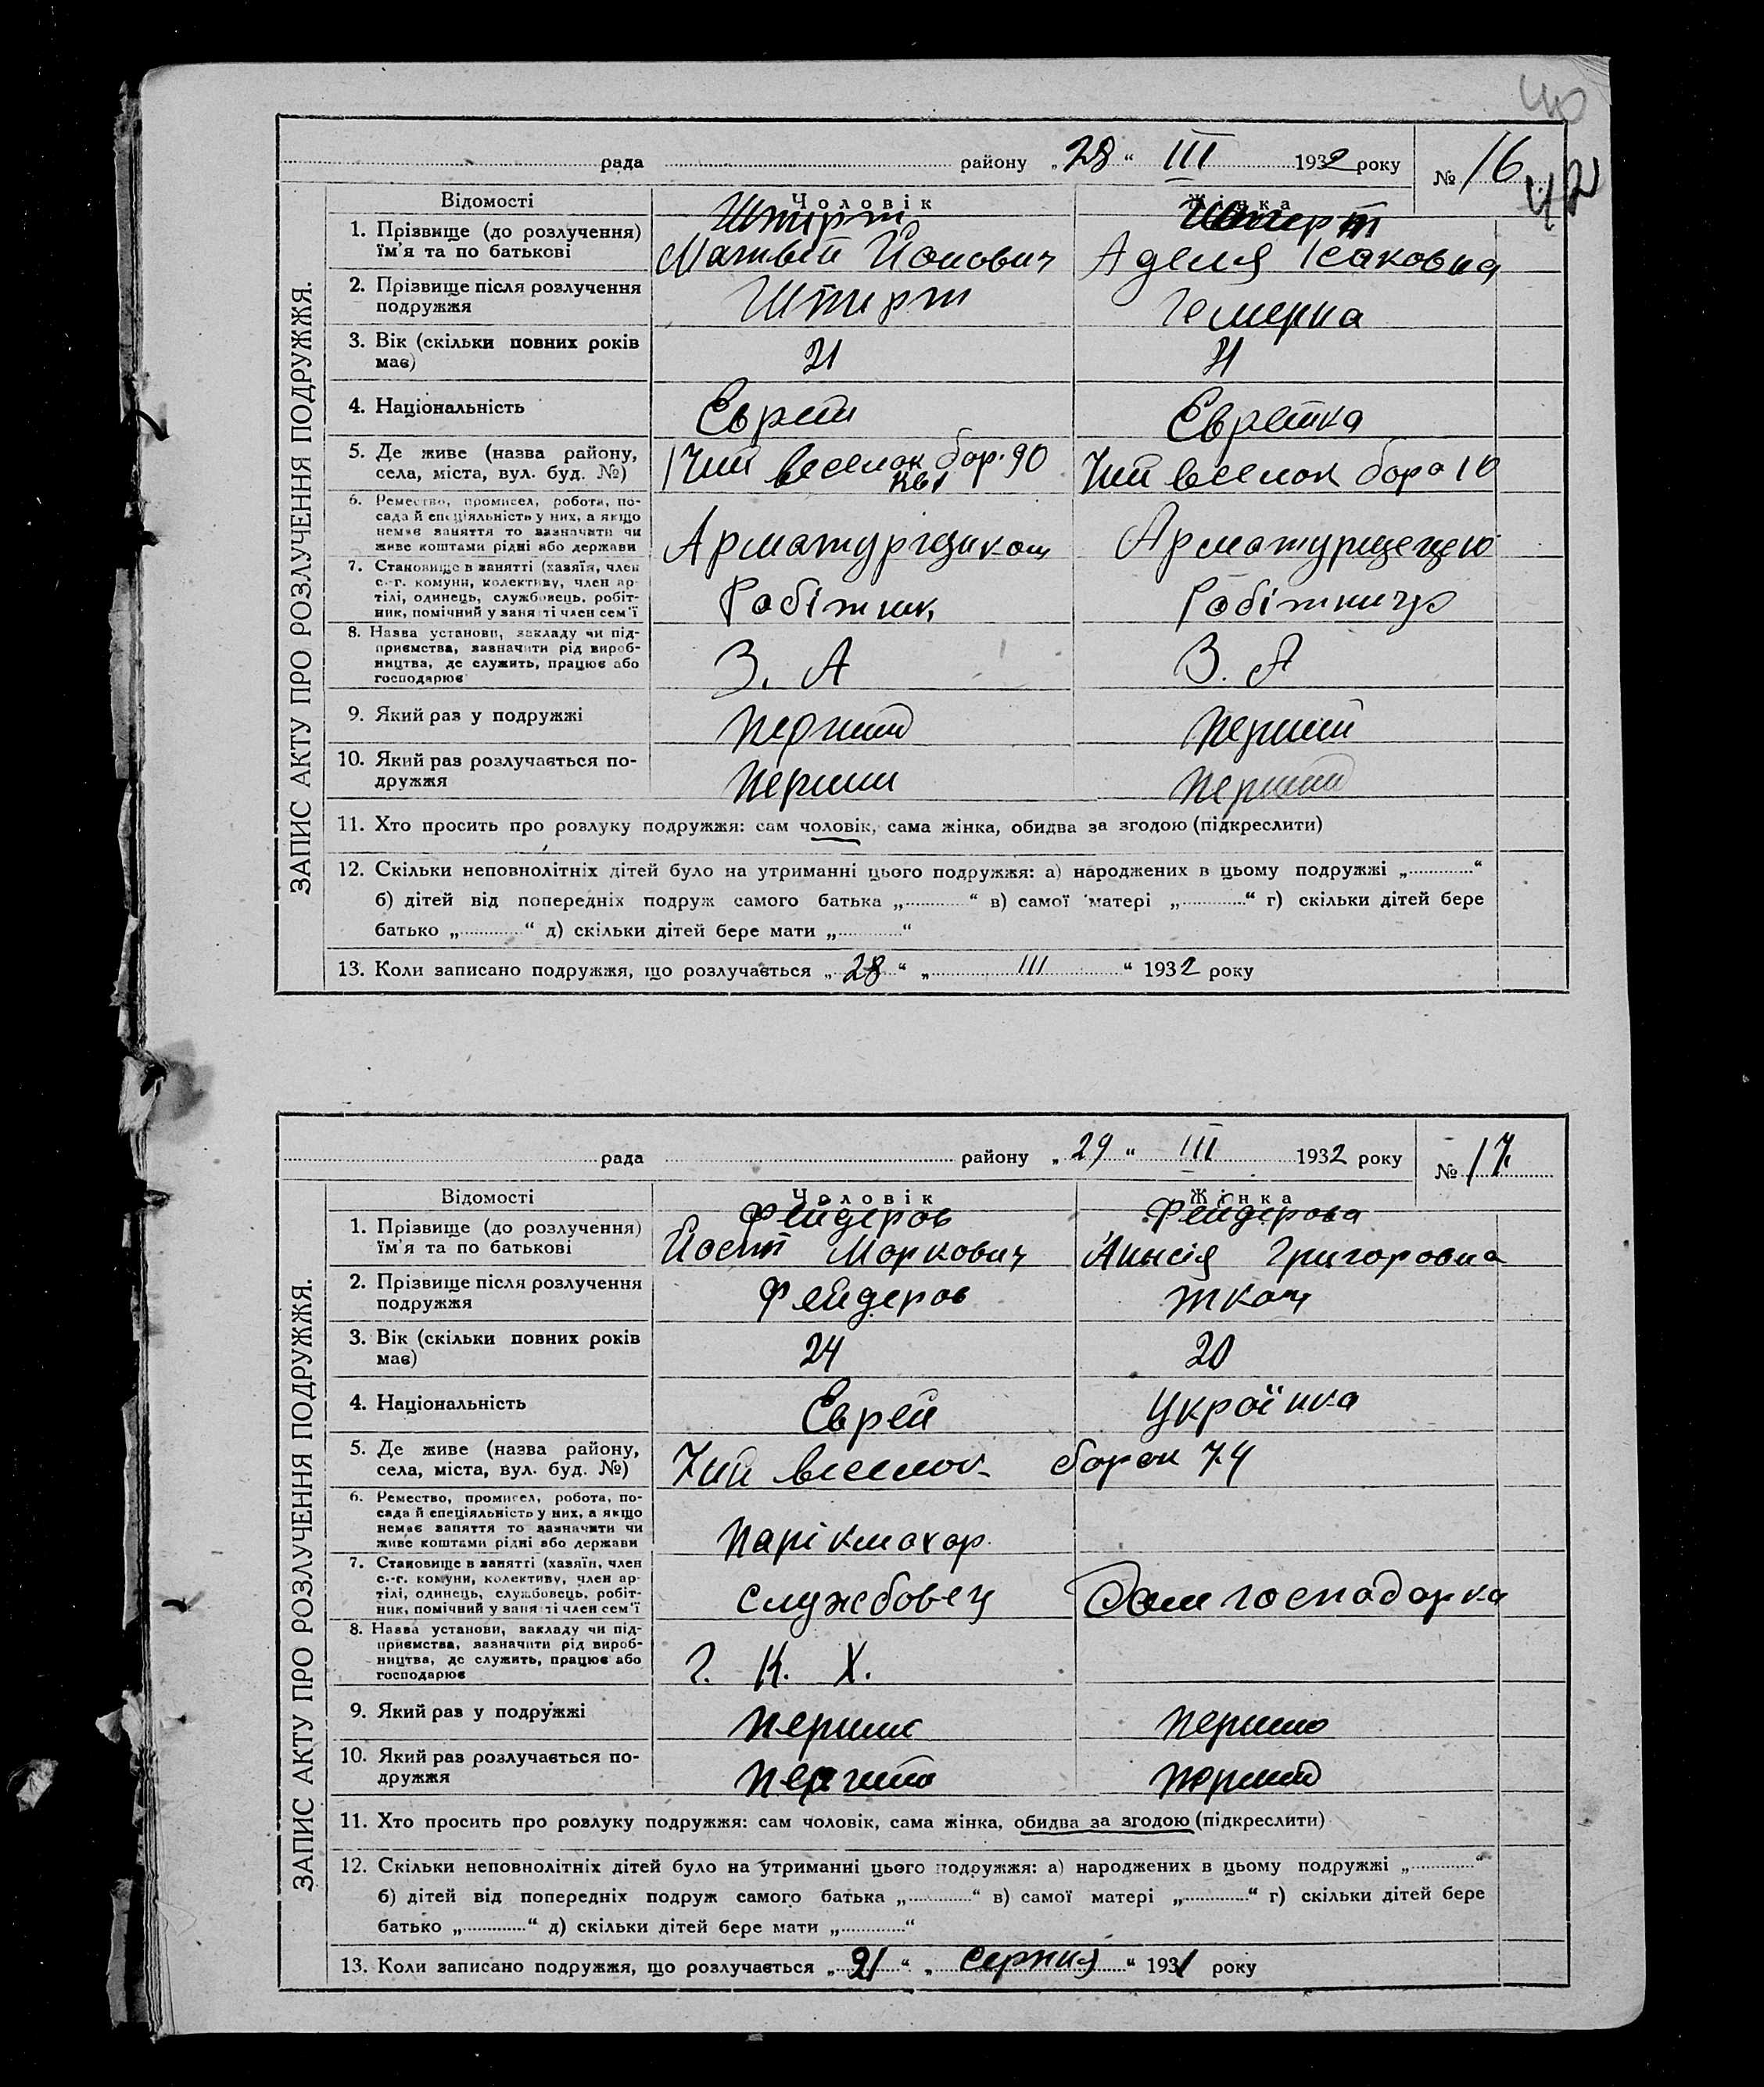 40
42
ЗАПИС АКТУ ПРО РОЗЛУЧЕННЯ ПОДРУЖЖЯ.
рада району „28“ III 1932 року № 16
Відомості Чоловік Жінка
Штирт
1. Прізвище (до розлучення) ім'я та по батькові
Матвей Аделя Ісаковна
2. Прізвище після розлучення подружжя
Штирт
3. Вік (скільки повних років має)
21 21
4. Національність
Еврей Еврейка
5. Де живе (назва району, села, міста, вул. буд. №)
веселок бар. 90 веселок бара 10
6. Ремество, промисел, робота, посада й спеціяльність у них, а якщо немає заняття то зазначити чи живе коштами рідні або держави
7. Становище в занятті (хазяїн, член с.-г. комуни, колективу, член артілі, одинець, службовець, робітник, помічний у занятті член сем'ї
Робітник Робітниця
8. Назва установи, закладу чи підприємства, зазначити рід виробництва, де служить, працює або господарює
З. А З. А
9. Який раз у подружжі
Перший Перший
10. Який раз розлучається подружжя
Перший Перший
11. Хто просить про розлуку подружжя: сам чоловік, сама жінка, обидва за згодою (підкреслити)
12. Скільки неповнолітніх дітей було на утриманні цього подружжя: а) народжених в цьому подружжі „............“
б) дітей від попередніх подруж самого батька „............“ в) самої матері „............“ г) скільки дітей бере
батько „............“ д) скільки дітей бере мати „............“
13. Коли записано подружжя, що розлучається „28“ „III“ 1932 року
ЗАПИС АКТУ ПРО РОЗЛУЧЕННЯ ПОДРУЖЖЯ.
рада району „29“ III 1932 року № 17
Відомості Чоловік Жінка
Фейдеров Фейдерова
1. Прізвище (до розлучення) ім'я та по батькові
Маркович Григоровна
2. Прізвище після розлучення подружжя
Фейдеров Ткач
3. Вік (скільки повних років має)
24 20
4. Національність
Еврей Українка
5. Де живе (назва району, села, міста, вул. буд. №)
7ий веселок барак 74
6. Ремество, промисел, робота, посада й спеціяльність у них, а якщо немає заняття то зазначити чи живе коштами рідні або держави
Парікмахар
7. Становище в занятті (хазяїн, член с.-г. комуни, колективу, член артілі, одинець, службовець, робітник, помічний у занятті член сем'ї
службовец Дом господарка
8. Назва установи, закладу чи підприємства, зазначити рід виробництва, де служить, працює або господарює
Г. К. Х.
9. Який раз у подружжі
10. Який раз розлучається подружжя
11. Хто просить про розлуку подружжя: сам чоловік, сама жінка, обидва за згодою (підкреслити)
12. Скільки неповнолітніх дітей було на утриманні цього подружжя: а) народжених в цьому подружжі „............“
б) дітей від попередніх подруж самого батька „............“ в) самої матері „............“ г) скільки дітей бере
батько „............“ д) скільки дітей бере мати „............“
13. Коли записано подружжя, що розлучається „21“ „Серпня“ 1931 року